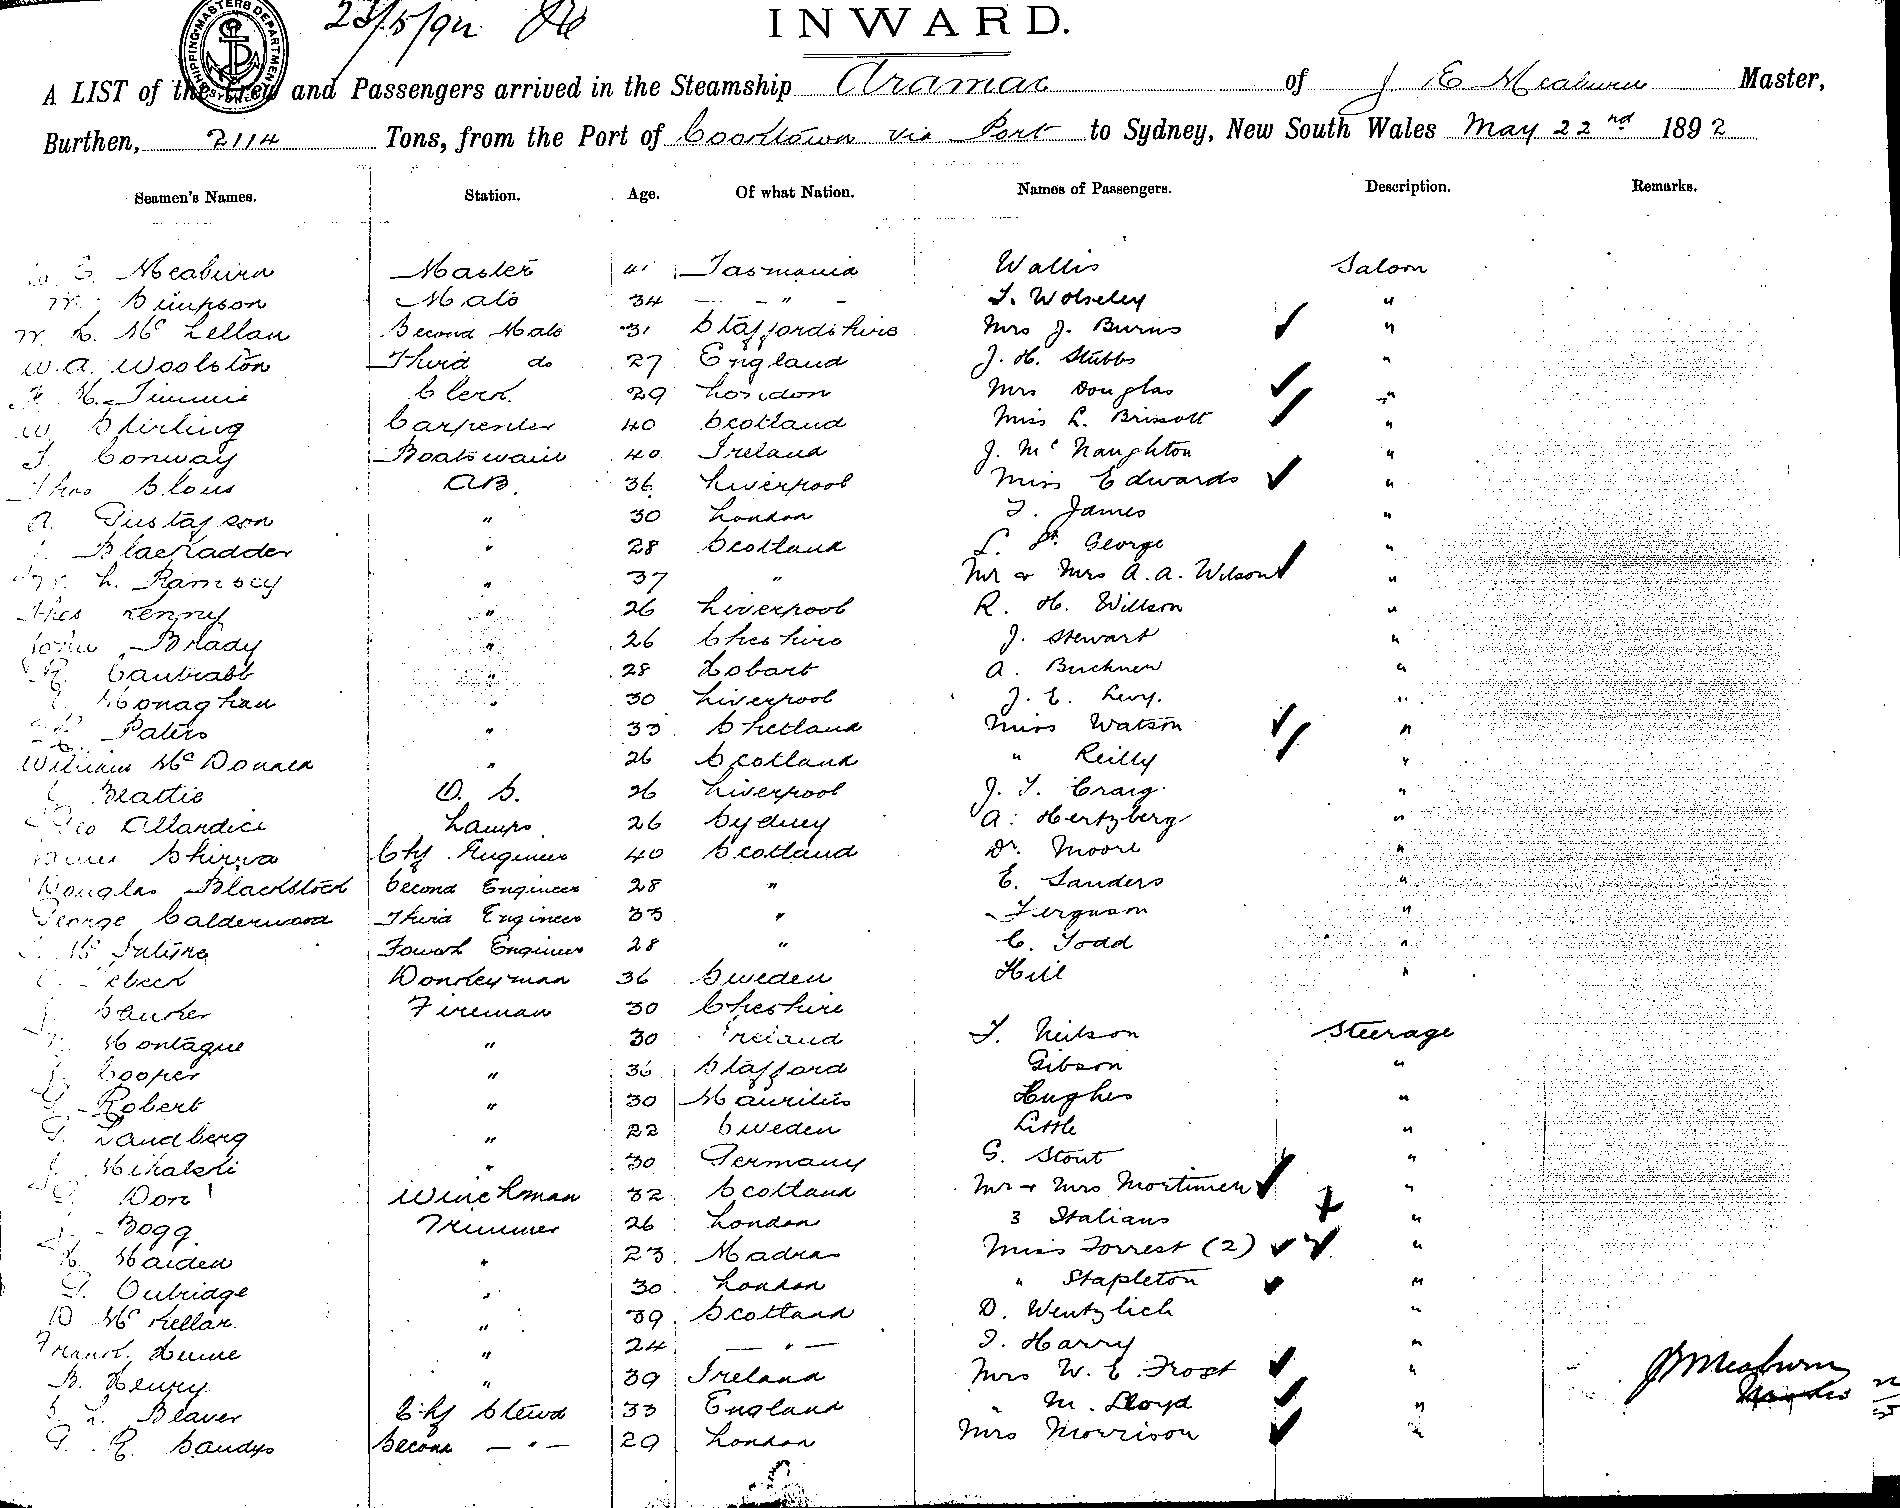 23/5/92
INWARD.
A LIST of the Crew and Passengers arrived in the Steamship Aramac of J E Meaburn Master,
Burthen, 2114 Tons, from the Port of Cooktown via Port to Sydney, New South Wales May 22nd 1892
Seamen's Names. Station. Age. Of what Nation. Names of Passengers. Description. Remarks.
E. Meaburn Master 41 Tasmania Wallis Saloon
W. Simpson Mate 34 — " — T. Wolseley "
W. L. Mc Lellan Second Mate 31 Staffordshire Mrs J. Burns "
W. A. Woolston Third do 27 England J. H. Stubbs "
H. Timmie Clerk 29 London Mrs Douglas "
W Stirling Carpenter 40 Scotland Miss L. Brissott "
J. Conway Boatswain 40 Ireland J. Mc Naughton "
Thos Slous AB. 36 Liverpool Miss Edwards "
A. Gustafson " 30 London T. James "
Blackadder " 28 Scotland L. St. George "
L. Ramsey " 37 " Mr & Mrs A. A. Wilson "
Thos Kenny " 26 Liverpool R. H. Willson "
John Brady " 26 Cheshire J. Stewart "
R. Cantrall " 28 Hobart A. Buchner "
Monaghan " 30 Liverpool J. E. Levy. "
Paters " 33 Shetland Miss Watson "
William Mc Donald " 26 Scotland " Reilly "
Beattie O. S. 26 Liverpool J. T. Craig. "
Geo Allardice Lamps 26 Sydney A. Hertzberg "
James Shirra Chf Engineer 40 Scotland Dr. Moore "
Douglas Blackstock Second Engineer 28 " E. Sanders "
George Calderwood Third Engineer 33 " Ferguson "
Fourth Engineer 28 " C. Todd "
Donkeyman 36 Sweden Hill "
J. Fireman 30 Cheshire
Montague " 30 Ireland T. Neilson Steerage
J. Cooper " 36 Stafford Gibson "
G. Robert " 30 Mauritius Hughes "
G. Sandberg " 22 Sweden Little "
J. Mikalski " 30 Germany G. Stout "
Don Winchman 32 Scotland Mr & Mrs Mortimer "
J. Bogg. Trimmer 26 London 3 Italians "
H. Maiden " 23 Madras Miss Forrest (2) "
G. Outridge " 30 London " Stapleton "
D Mc Kellar. " 39 Scotland D. Wentzlich "
Frank Hume " 24 — " — T. Harry "
B. Henry " 39 Ireland Mrs W. E. Frost "
L. Beaver Chf Stewd 33 England " M. Lloyd "
G. R. Sandys Second — " — 29 London Mrs Morrison "
J E Meaburn